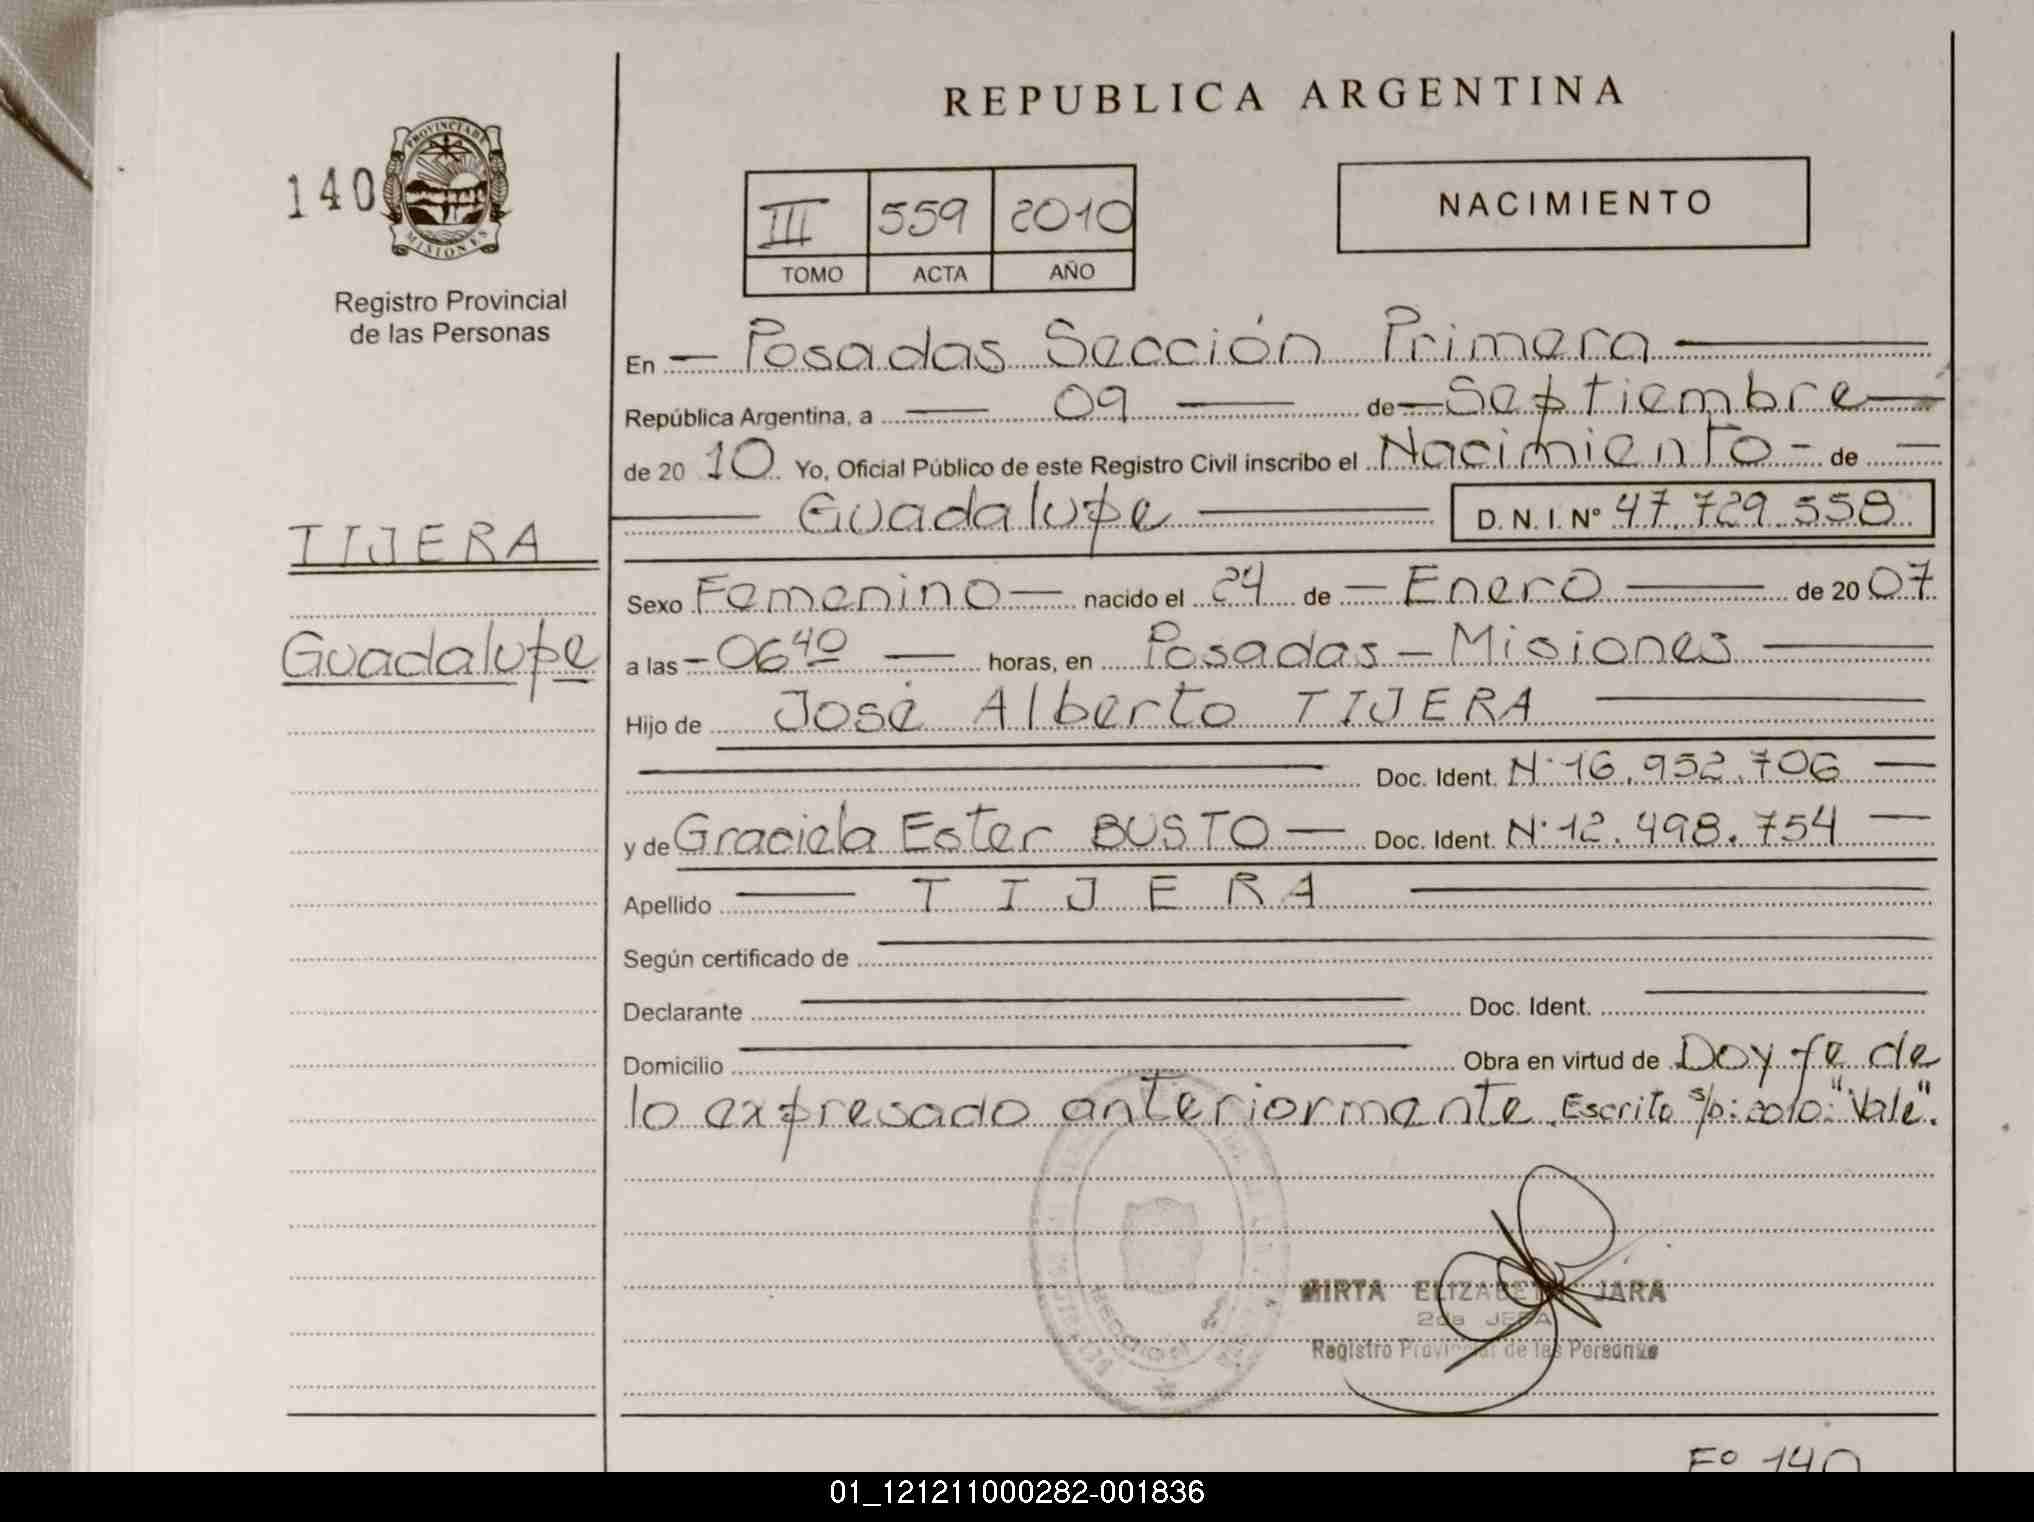 REPUBLICA ARGENTINA
140
PROVINCIA DE
MISIONES
Registro Provincial
de las Personas
III 559 2010
TOMO ACTA AÑO
NACIMIENTO
En Posadas Sección Primera
República Argentina, a 09 de Septiembre
de 20 10 Yo, Oficial Público de este Registro Civil inscribo el Nacimiento - de
Guadalupe D. N. I. Nº 47.729.558
TIJERA
Sexo Femenino nacido el 24 de Enero de 20 07
Guadalupe
a las 06 40 horas, en Posadas - Misiones
Hijo de José Alberto TIJERA
Doc. Ident. N° 16.952.706
y de Graciela Ester BUSTO Doc. Ident. N° 12.498.754
Apellido TIJERA
Según certificado de
Declarante Doc. Ident.
Domicilio Obra en virtud de Doy fe de
lo expresado anteriormente. Escrito s/p: 2010: "Vale".
MIRTA ELIZABETH JARA
2da JEFA
Registro Provincial de las Personas
Fº 140
01_121211000282-001836